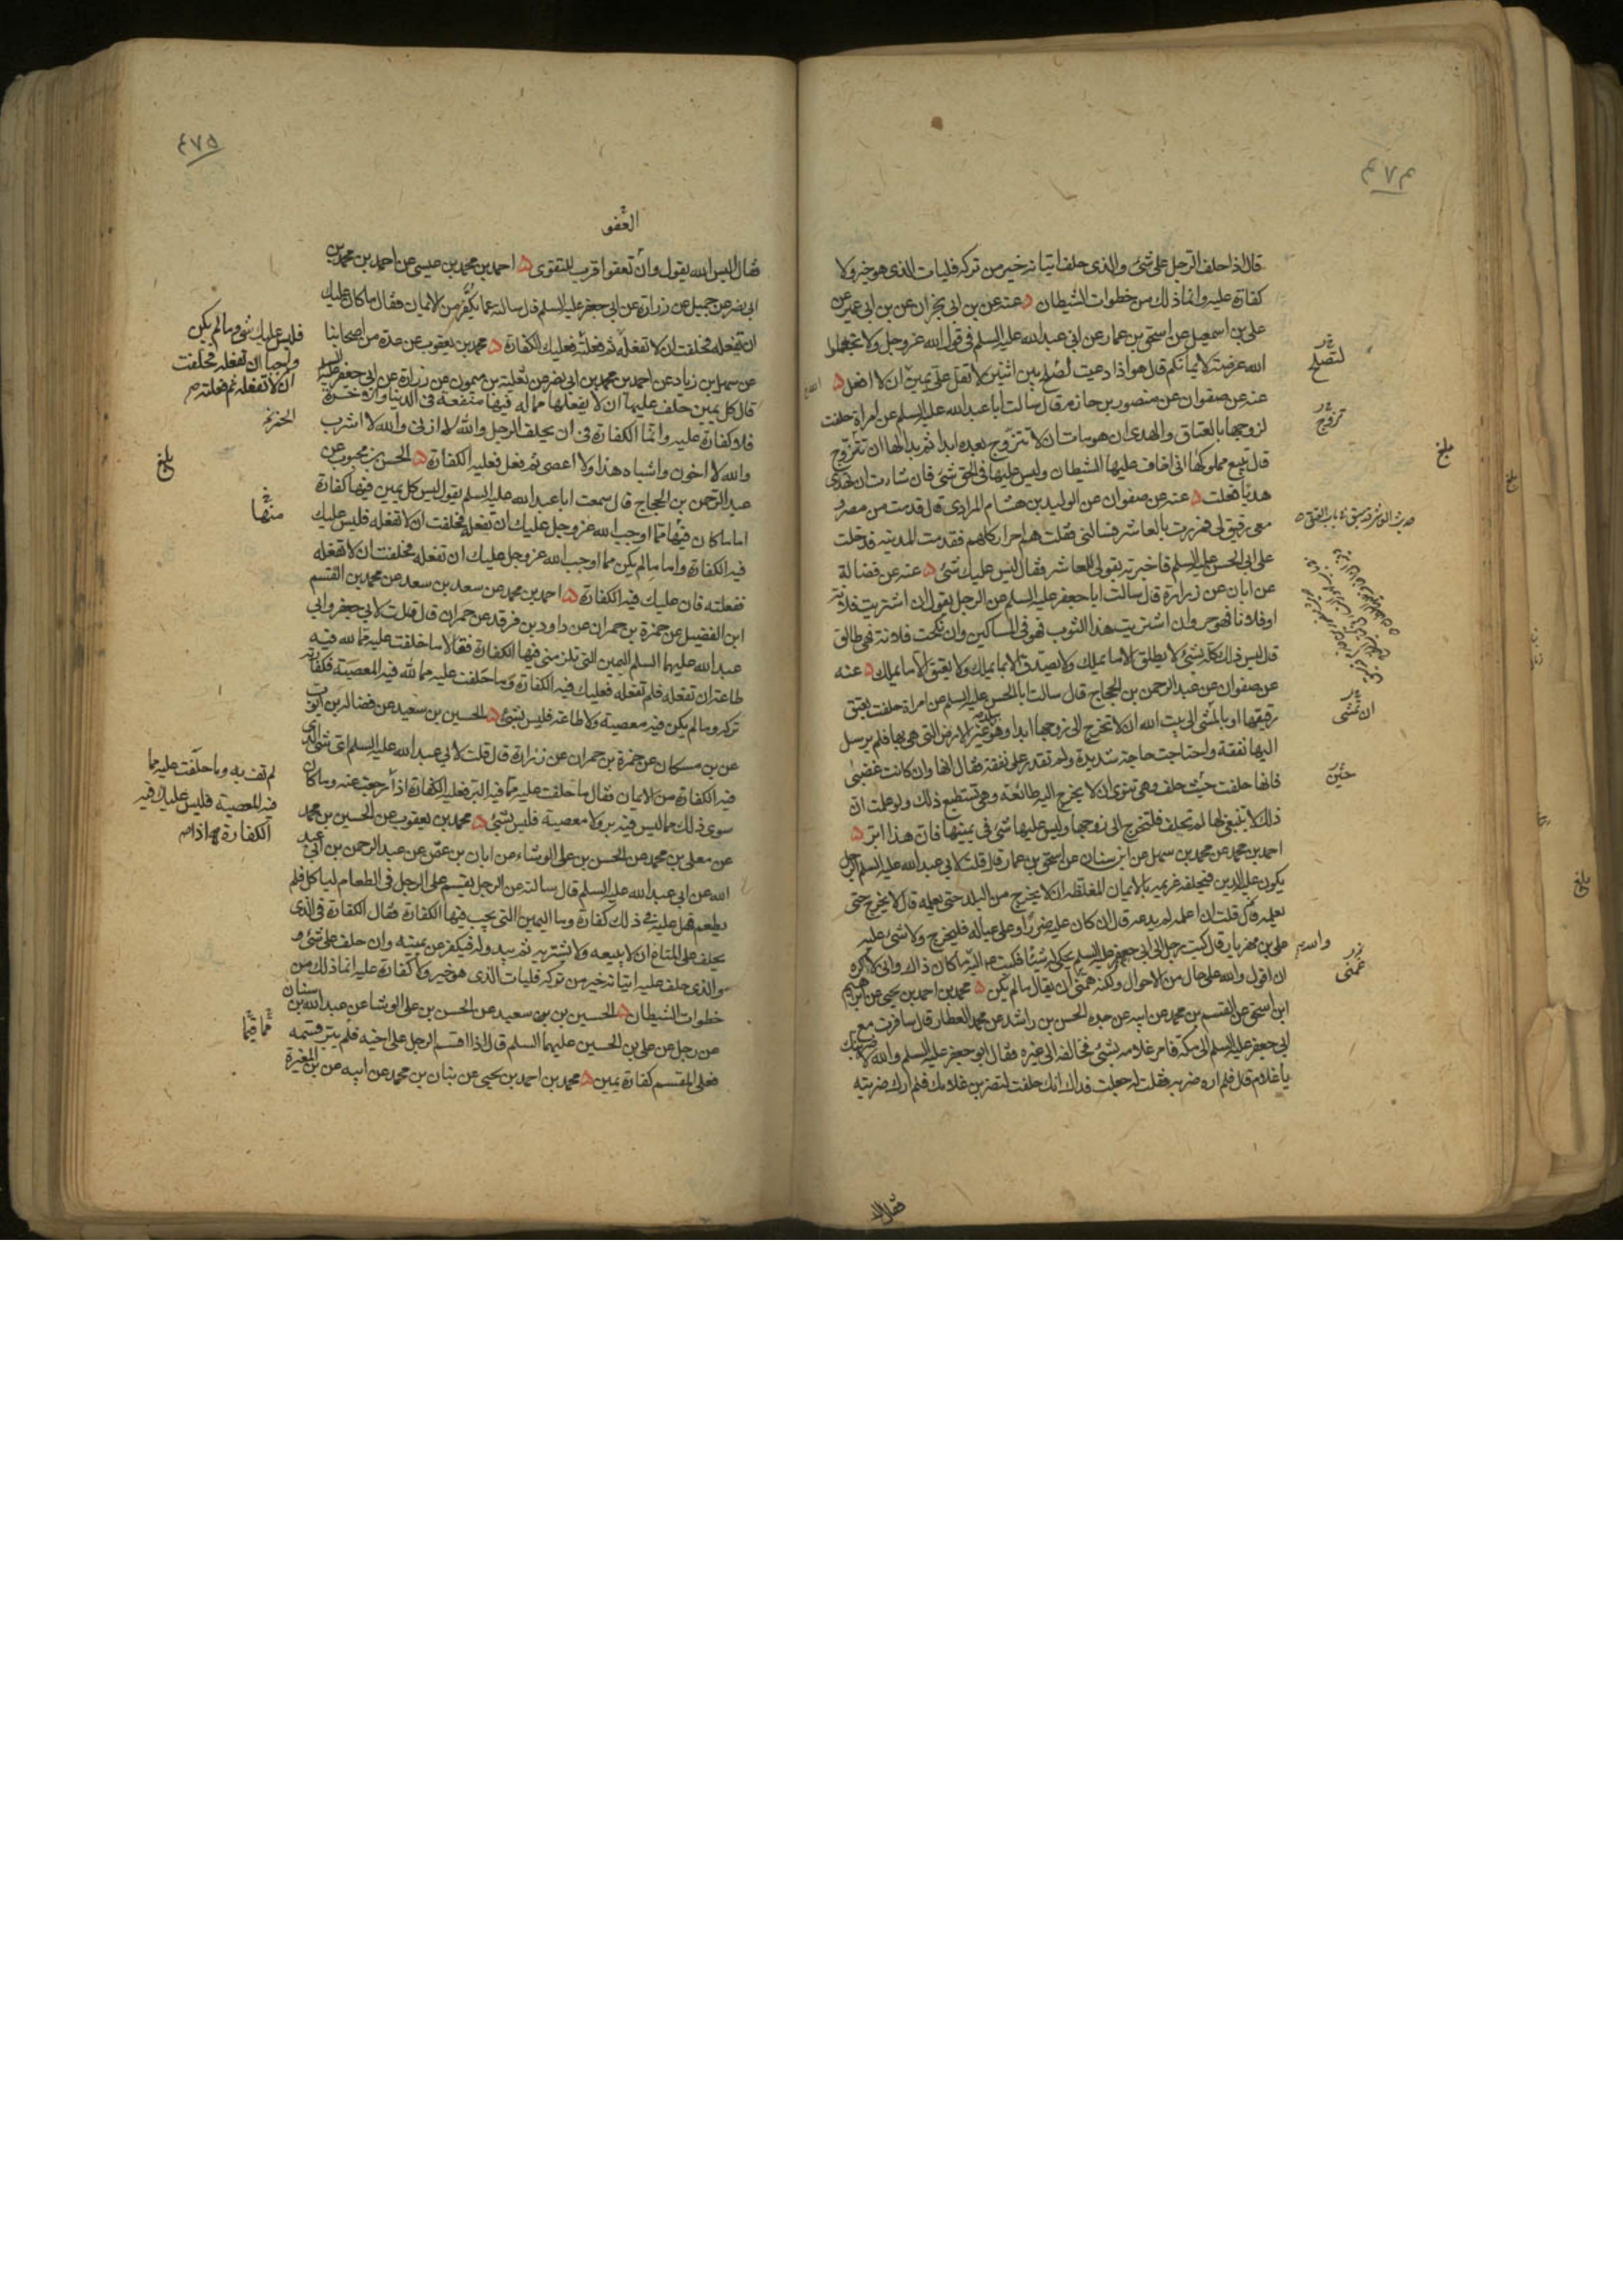 ٤٧٤
قال اذا حلف الرجل على شئ والذى حلف اتيانه خير من تركه فليات الذى هو خير ولا
كفارة عليه وانما ذلك من خطوات الشيطان عنه عن بن ابى نجران عن بن ابى عمير عن
على بن اسمعيل عن اسحق بن عمار عن ابى عبد الله عليه السلم فى قول الله عز وجل ولا تجعلوا
الله عرضة لايمانكم قال هو اذا دعيت لصلح بين اثنين لا تقل على يمين ان لا افعل
عنه عن صفوان عن منصور بن حازم قال سالت ابا عبد الله عليه السلم عن امراة حلفت
لزوجها بالعتاق والهدى ان هو مات ان لا تتزوج بعده ابدا ثم بدا لها ان تتزوج
قال تبيع مملوكها انى اخاف عليها الشيطان وليس عليها فى الحق شئ فان شاءت ان تهدى
هديا فعلت عنه عن صفوان عن الوليد بن هشام المرادى قال قدمت من مصر و
معى رقيق لى فمررت بالعاشر فسالنى فقلت هم احرار كلهم فقدمت المدينه فدخلت
على ابى الحسن عليه السلم فاخبرته بقولى للعاشر فقال ليس عليك شئ عنه عن فضالة
عن ابان عن زرارة قال سالت ابا جعفر عليه السلم عن الرجل يقول ان اشتريت فلانة
او فلانا فهو حر وان اشتريت هذا الثوب فهو فى المساكين وان نكحت فلانة فهى طالق
قال ليس ذلك كله بشئ لا يطلق الا ما يملك ولا يصدق الا بما يملك ولا يعتق الا ما يملك عنه
عن صفوان عن عبد الرحمن بن الحجاج قال سالت ابا الحسن عليه السلم عن امراة حلفت بعتق
رقيقها او بالمشى الى بيت الله ان لا تخرج الى زوجها ابدا وهو ببلد غير الارض التى هى بها فلم يرسل
اليها نفقة واحتاجت حاجة شديدة ولم تقدر على نفقة فقال انها وان كانت غضبى
فانها حلفت حيث حلفت وهى تنوى ان لا تخرج اليه طائعة وهى تستطيع ذلك ولو علمت ان
ذلك لا ينبغى لها لم تحلف فلتخرج الى زوجها وليس عليها شئ فى يمينها فان هذا ابر
احمد بن محمد عن محمد بن سهل عن ابن سنان عن اسحق بن عمار قال قلت لابى عبد الله عليه السلم الرجل
يكون عليه الدين فيحلفه غريمه بالايمان المغلظه ان لا يخرج من البلد حتى يعلمه قال لا يخرج حتى
يعلمه قال قلت ان اعلمه لم يدعه قال ان كان عليه ضررا او على عياله فليخرج ولا شئ عليه
على بن مهزيار قال كتب رجل الى ابى جعفر عليه السلم يحكى له شيئا فكتب اليه والله ما كان ذاك وانى لاكره
ان اقول والله على حال من الاحوال ولكنه غمنى ان يقال ما لم يكن محمد بن احمد بن يحيى عن ابرهيم
ابن اسحق عن القسم بن محمد عن ابيه عن جده الحسن بن راشد عن محمد العطار قال سافرت مع
ابى جعفر عليه السلم الى مكة فامر غلامه بشئ فخالفه الى غيره فقال ابو جعفر عليه السلم والله لاضربنك
يا غلام قال فلم اره ضربه فقلت له جعلت فداك انك حلفت لتضربن غلامك فلم ارك ضربته
لتصلح
تزوج
بلغ
ان تمشى
حين
غمنى
فقال اليس
٤٧٥
العفو
فقال اليس الله يقول وان تعفوا اقرب للتقوى احمد بن محمد بن عيسى عن احمد بن محمد بن
ابى نصر عن جميل عن زرارة عن ابى جعفر عليه السلم قال سالته عما يكفر من الايمان فقال ما كان عليك
ان تفعله فحلفت ان لا تفعله ثم فعلته فعليك الكفارة محمد بن يعقوب عن عدة من اصحابنا
عن سهل بن زياد عن احمد بن محمد بن ابى نصر عن ثعلبة بن ميمون عن زرارة عن ابى جعفر عليه السلم
قال كل يمين حلف عليها ان لا يفعلها مما له فيها منفعة فى الدنيا والاخرة
فلا كفارة عليه وانما الكفارة فى ان يحلف الرجل والله لا ازنى والله لا اشرب
والله لا اخون واشباه هذا ولا اعصى ثم فعل فعليه الكفارة الحسن بن محبوب عن
عبد الرحمن بن الحجاج قال سمعت ابا عبد الله عليه السلم يقول ليس كل يمين فيها كفارة
اما ما كان فيها مما اوجب الله عز وجل عليك ان تفعله فحلفت ان لا تفعله فليس عليك
فيه الكفارة واما ما لم يكن مما اوجب الله عز وجل عليك ان تفعله فحلفت ان لا تفعله
ففعلته فان عليك فيه الكفارة احمد بن محمد عن سعد بن سعد عن محمد بن القسم
ابن الفضيل عن حمزة بن حمران عن داود بن فرقد عن حمران قال قلت لابى جعفر وابى
عبد الله عليهما السلم اليمين التى تلزمنى فيها الكفارة فقالا ما حلفت عليه مما لله فيه
طاعة ان تفعله فلم تفعله فعليك فيه الكفارة وما حلفت عليه مما لله فيه المعصية فكفارته
تركه وما لم يكن فيه معصية ولا طاعة فليس بشئ الحسين بن سعيد عن فضالة بن ايوب
عن بن مسكان عن حمزة بن حمران عن زرارة قال قلت لابى عبد الله عليه السلم اى شئ الذى
فيه الكفارة من الايمان فقال ما حلفت عليه مما فيه البر فعليه الكفارة اذا رجعت عنه وما كان
سوى ذلك مما ليس فيه بر ولا معصية فليس بشئ محمد بن يعقوب عن الحسين بن محمد
عن معلى بن محمد عن الحسن بن على الوشاء عن ابان بن عثمن عن عبد الرحمن بن ابى عبد
الله عن ابى عبد الله عليه السلم قال سالته عن الرجل يقسم على الرجل فى الطعام لياكل فلم
يطعم فهل عليه فى ذلك كفارة وما اليمين التى يجب فيها الكفارة فقال الكفارة فى الذى
يحلف على المتاع ان لا يبيعه ولا يشتريه ثم يبدو له فيكفر عن يمينه وان حلف على شئ و
والذى حلف عليه اتيانه خير من تركه فليات الذى هو خير ولا كفارة عليه انما ذلك من
خطوات الشيطان الحسين بن سعيد عن الحسن بن على الوشا عن عبد الله بن سنان
عن رجل عن على بن الحسين عليهما السلم قال اذا اقسم الرجل على اخيه فلم يبر قسمه
فعلى المقسم كفارة يمين محمد بن احمد بن يحيى عن بنان بن محمد عن ابيه عن بن المغيرة
فليس عليك شئ وما لم يكن
واجبا ان تفعله فحلفت
ان لا تفعله ثم فعلته
بلغ
منها
لم تف به وما حلفت عليه مما
فيه المعصية فليس عليك فيه
الكفارة